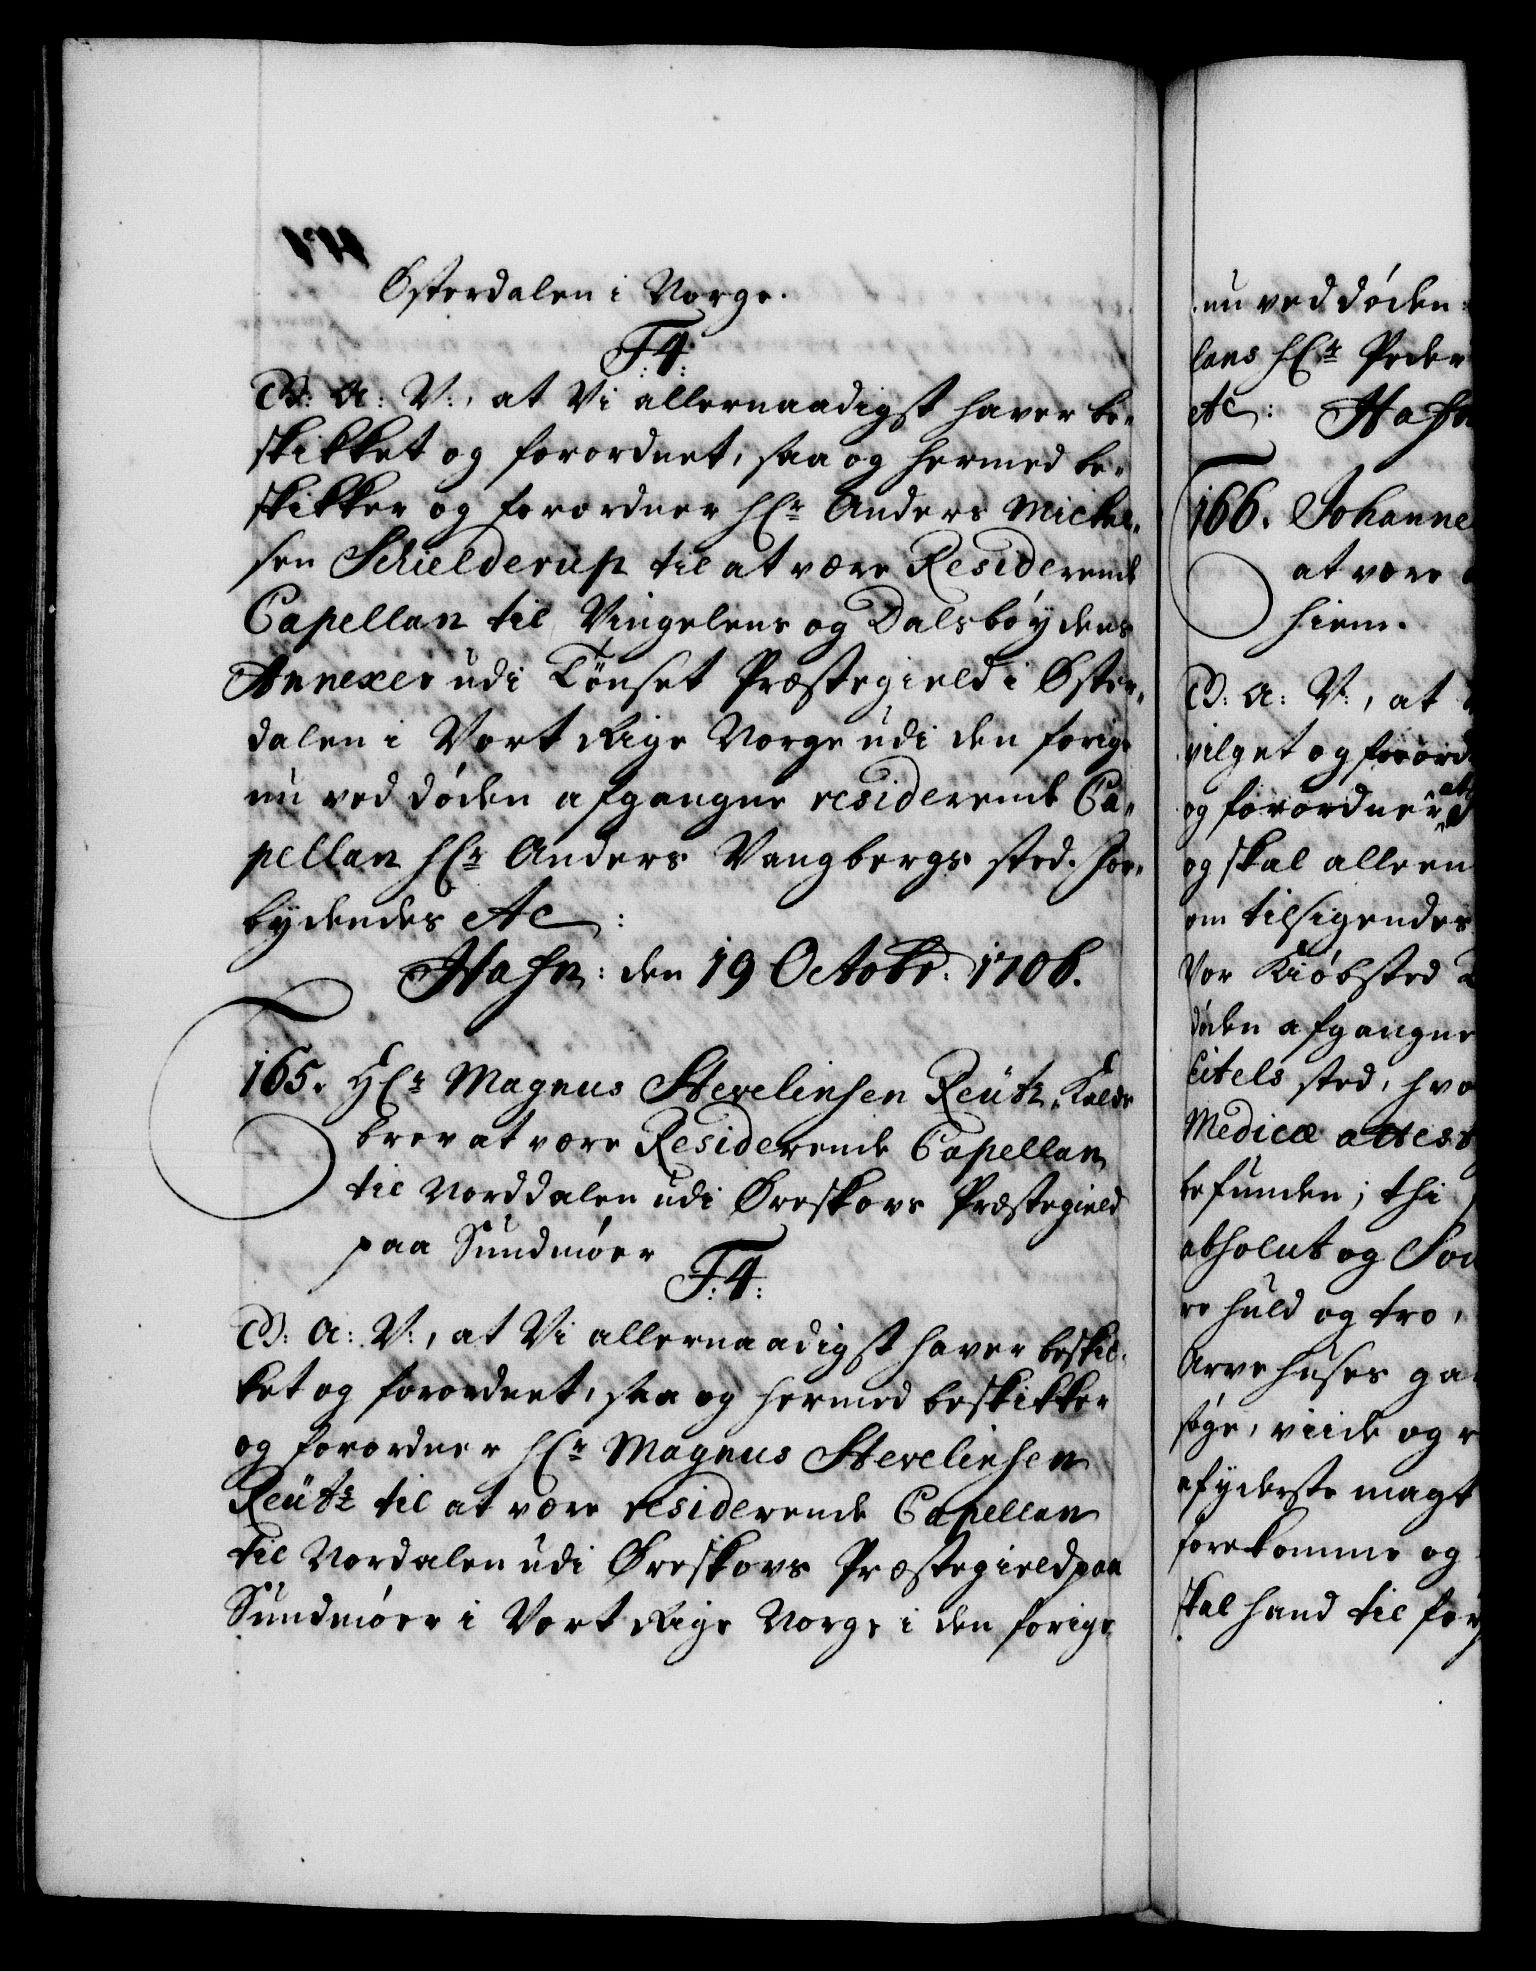 Østerdalen i Norge.
F:4:
G: A: V:, at Vi allernaadigst haver be-
skikket og forordnet, saa og hermed be-
skikker og forordner Hr Anders Michel-
sen Schielderup til at være Residerende
Capellan til Vingelens og Dalsbøydens
Annexer udi Tønset Præstegield i Øster-
dalen i Vort Rige Norge udi den forige
nu ved døden afgangne residerende Ca-
pellan Hr Anders Vangbergs sted. For-
bydendes Etc:
Hafn: den 19 Octobr: 1706.
165. Hr Magnus Stevelinsen Reütz, Kalds
brev at være Residerende Capellan
til Norddalen udi Ørskovs Præstegield
paa Sundmøer
F:4:
G: A: V:, at Vi allernaadigst haver beskic-
ket og forordnet, saa og hermed beskikker
og forordner Hr Magnus Stevelinsen
Reütz til at være residerende Capellan
til Nordalen udi Ørskovs Præstegield paa
Sundmøer i Vort Rige Norge i den forige
nu ved døden
lans Hr Peder
Etc: Hafn
166. Johanne
at være
hiem.
G: A: V:, at
vilget og forord
og forordner, at
og skal alleen
om tilsigendes
Vor Kiøbsted
døden afgangne
Citels sted, hvo
Medicæ attest
befunden; thi
absolut og Sou
re huld og tro,
Arvehuses ga
søge, viide og r
afyderste magt
forekomme og
skal hand til for